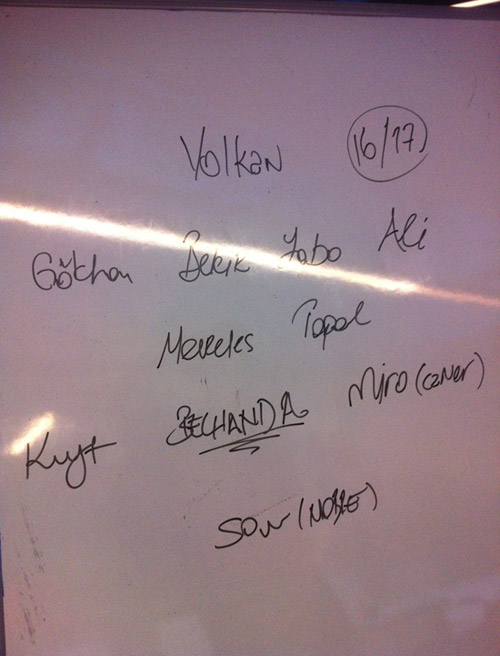 Volkan 16/17
Gökhan Bekir Yobo Ali
Meireles Topal
Kuyt BELHANDA Miro (caner)
Sow (NOBRE)